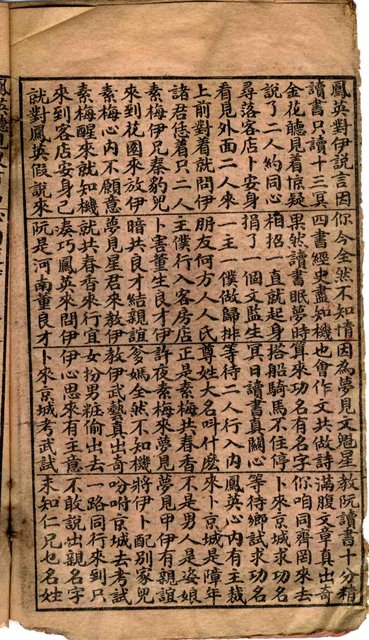 鳳英對伊說言因 你今全然不知情 因為夢見文魁星 教阮讀書十分精
讀書只讀十三頁 四書經史盡知機 也會作文共做詩 滿腹文章真出奇
金花聽見着惊疑 果然讀書眠夢時 算來功名有名字 你咱同齊罔來去
說了二人約同心 相招一直就起身 搭船騎馬不住停 卜來京城求功名
尋落客店卜安身 捐了一個文監生 冥日讀書真關心 等待鄉試求功名
看見外面二人來 一主一僕做歸排 等待二人行入內 鳳英心內有主裁
上前對看就問伊 朋友何方人人氏 尊姓大名叫什麼 來卜京城是障年
諸君恁着只二人 主僕行入客房店 正是素梅共春香 不是男人是姿娘
素梅伊兄秦豹兇 卜害董生良才伊 許夜素梅 夢見甲伊有親誼
來到花園來放伊 暗共良才結親誼 爹媽全然不知機 將伊卜配別家兇
素梅心內不願意 夢見星君來教伊 教伊武藝真出奇 吩咐京城去考試
素梅醒來就知機 就共春香來行宜 女扮男粧偷出去 一路同行來到只
來到客店安身己 湊巧鳳英來問伊 伊心思來有主意 不敢說出親名字
就對鳳英假說來 阮是河南董良才 卜來京城考武試 未知仁兄也名姓